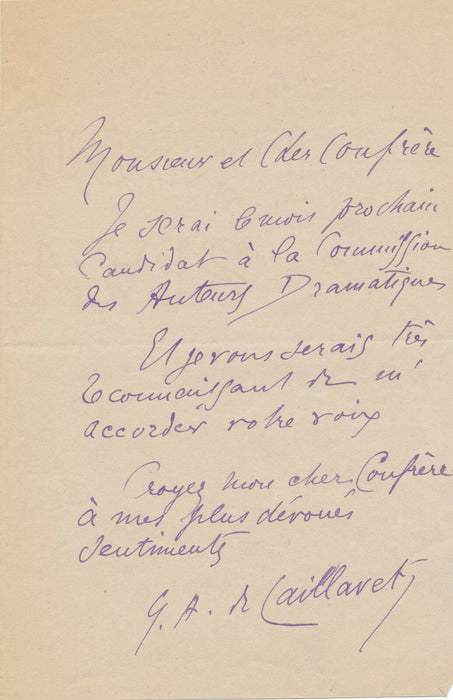 Monsieur et Cher Confrère
Je serai le mois prochain
Candidat à la Commission
des Auteurs Dramatiques
Et je vous serais très
reconnaissant de m'
accorder votre voix
Croyez mon cher Confrère
à mes plus dévoués
sentiments
G. A. de Caillavet